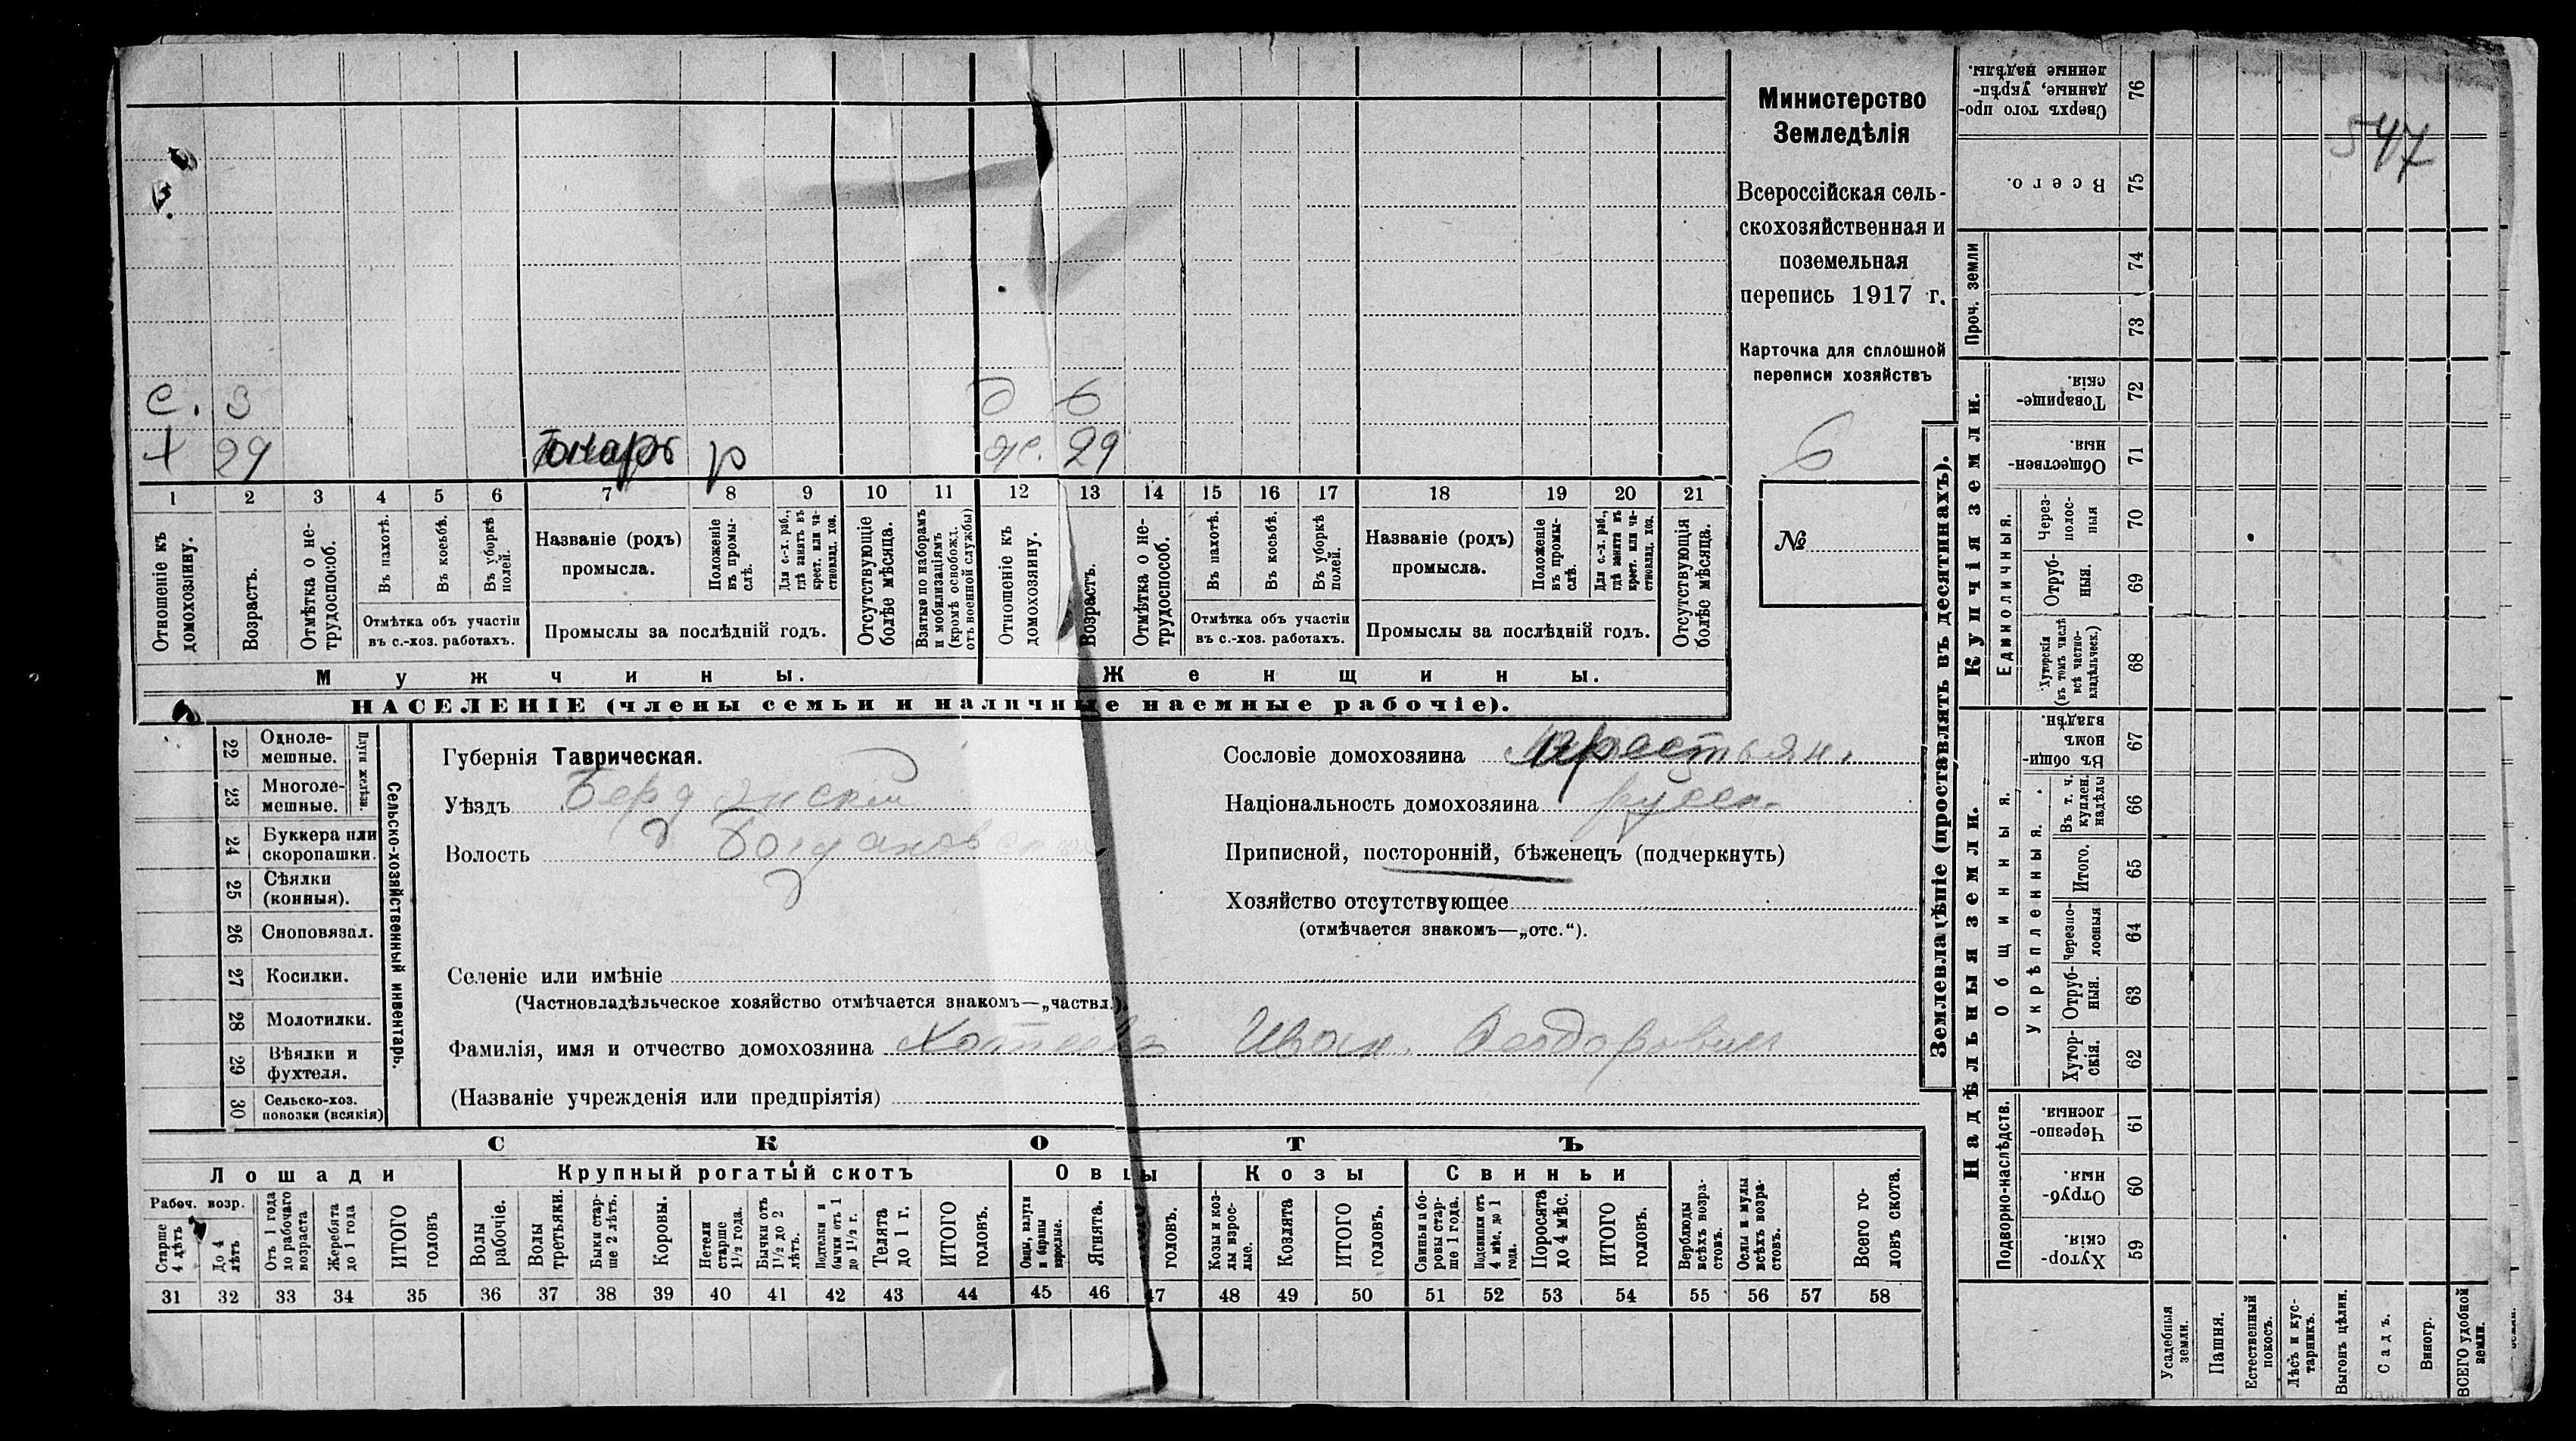 547
Министерство
Земледѣлія
Всероссійская сель-
скохозяйственная и
поземельная
перепись 1917 г.
Карточка для сплошной
переписи хозяйствъ
6
№
с. 3 д 6
+ 29 р ж. 29
1 2 3 4 5 6 7 8 9 10 11 12 13 14 15 16 17 18 19 20 21
Отношеніе къ домохозяину.
Возрастъ.
Отмѣтка о не-трудоспособ.
Въ пахотѣ.
Въ косьбѣ.
Въ уборкѣ полей.
Отмѣтка объ участіи
въ с.-хоз. работахъ.
Названіе (родъ)
промысла.
Положеніе въ промы-слѣ.
Для с.-х. раб., гдѣ занятъ въ крест. или ча-стновлад. хоз.
Промыслы за послѣдній годъ.
Отсутствующіе болѣе мѣсяца.
Взятые по наборамъ и мобилизаціямъ (кромѣ освобожд. отъ военной службы)
Отношеніе къ домохозяину.
Возрастъ.
Отмѣтка о не-трудоспособ.
Въ пахотѣ.
Въ косьбѣ.
Въ уборкѣ полей.
Отмѣтка объ участіи
въ с.-хоз. работахъ.
Названіе (родъ)
промысла.
Положеніе въ промы-слѣ.
Для с.-х. раб., гдѣ занята въ крест. или ча-стновлад. хоз.
Промыслы за послѣдній годъ.
Отсутствующія болѣе мѣсяца.
Мужчины. Женщины.
НАСЕЛЕНІЕ (члены семьи и наличные наемные рабочіе).
22 Одноле-мешные.
23 Многоле-мешные.
Плуги желѣзн.
24 Буккера или скоропашки.
25 Сѣялки (конныя).
26 Сноповязал.
27 Косилки.
28 Молотилки.
29 Вѣялки и фухтеля.
30 Сельско-хоз. повозки (всякія)
Сельско-хозяйственный инвентарь.
Губернія Таврическая.
Уѣздъ Бердянскій
Волость Богдановская
Сословіе домохозяина крестьян.
Національность домохозяина русск.
Приписной, посторонній, бѣженецъ (подчеркнуть)
Хозяйство отсутствующее
(отмѣчается знакомъ—„отс.“).
Селеніе или имѣніе
(Частновладѣльческое хозяйство отмѣчается знакомъ—„частвл.)
Фамилія, имя и отчество домохозяина Иван. Феодорович
(Названіе учрежденія или предпріятія)
СКОТЪ
Лошади Крупный рогатый скотъ Овцы Козы Свиньи
Рабоч. возр.
Старше 4 лѣтъ
До 4 лѣтъ
Отъ 1 года до рабочаго возраста
Жеребята до 1 года
ИТОГО головъ
Волы рабочіе.
Волы третьяки.
Быки стар-ше 2 лѣтъ.
Коровы.
Нетели старше 1½ года.
Бычки отъ 1½ до 2 лѣтъ.
Подтелки и бычки отъ 1 до 1½ г.
Телята до 1 г.
ИТОГО головъ.
Овцы, валухи и бараны взрослые.
Ягнята.
головъ.
Козы и коз-лы взрос-лые.
Козлята
ИТОГО головъ.
Свиньи и бо-ровы стар-ше 1 года.
Подсвинки отъ 4 мѣс. до 1 года.
Поросята до 4 мѣс.
ИТОГО головъ.
Верблюды всѣхъ возра-стовъ.
Ослы и мулы всѣхъ возра-стовъ.
Всего го-ловъ скота.
31 32 33 34 35 36 37 38 39 40 41 42 43 44 45 46 47 48 49 50 51 52 53 54 55 56 57 58
Землевладѣніе (проставлять въ десятинахъ).
Надѣльныя земли. Купчія земли. Проч. земли
Подворно-наслѣдств. Общинныя. Укрѣпленныя. Единоличныя.
Сверхъ того про-данные, укрѣп-ленные надѣлы. 76
Всего. 75
74
73
Товарище-скія. 72
Обществен-ныя. 71
Через-полос-ныя 70
Отруб-ныя. 69
Хуторскія (въ томъ числѣ всѣ частно-владѣльческ.) 68
Въ общи-номъ владѣн. 67
Въ т. ч. куплен. надѣлы 66
Итого. 65
Черезпо-лосныя 64
Отруб-ныя. 63
Хутор-скія. 62
Черезпо-лосныя. 61
Отруб-ныя. 60
Хутор-скія. 59
Усадебныя земли.
Пашня.
Естественный покосъ.
Лѣсъ и кус-тарникъ.
Выгонъ цѣлин.
Садъ.
Виногр.
ВСЕГО удобной земли.